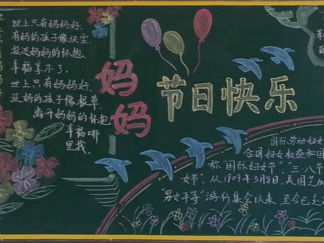 世上只有妈妈好,
有妈的孩子像块宝.
投进妈妈的怀抱,
幸福享不了.
世上只有妈妈好,
没妈的孩子像根草.
离开妈妈的怀抱
幸福哪
里找.
妈妈
节日快乐
国际劳动妇女
合国妇女权益和国
称"国际妇女节"."三八节
女节".从1909年3月8日,美国芝加
"男女平等"游行集会以来 至今已走